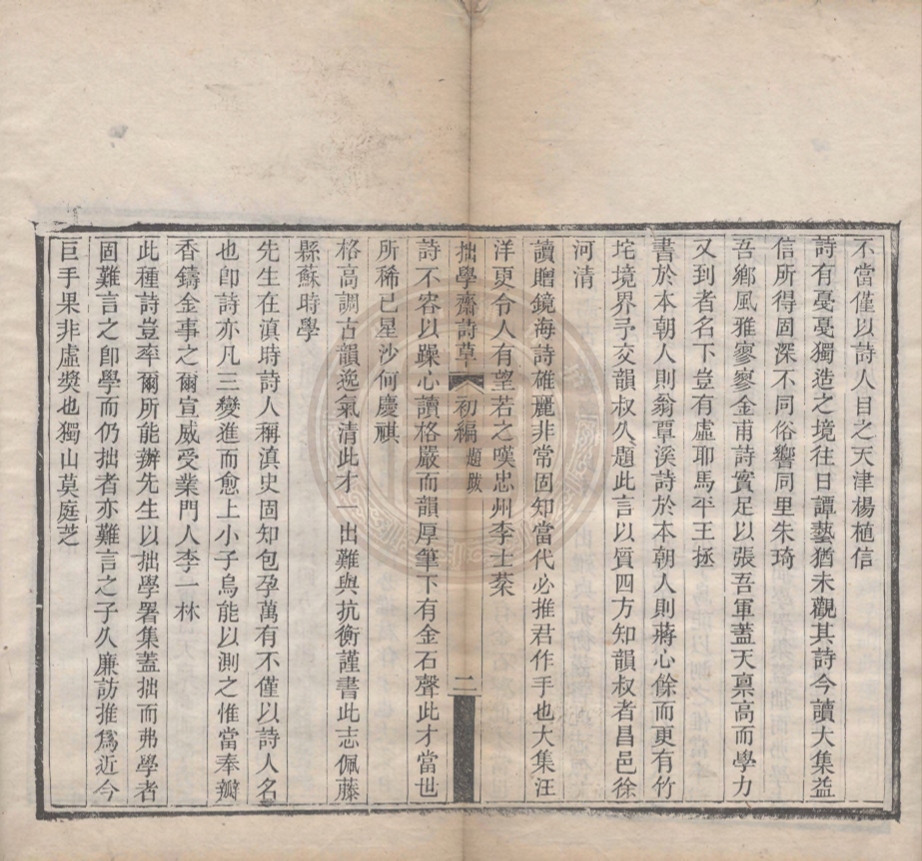 不當僅以詩人目之天津楊植信
詩有戞戞獨造之境往日譚藝猶未觀其詩今讀大集益
信所得固深不同俗響同里朱琦
吾鄉風雅寥寥金甫詩實足以張吾軍蓋天禀高而學力
又到者名下豈有虛耶馬平王拯
書於本朝人則翁覃溪詩於本朝人則蔣心餘而更有竹
坨境界予交韻叔久題此言以質四方知韻叔者昌邑徐
河清
讀贈鏡海詩雄麗非常固知當代必推君作手也大集汪
洋更令人有望若之嘆忠州李士棻
拙學齋詩草
初編 題跋
二
詩不容以躁心讀格嚴而韻厚筆下有金石聲此才當世
所稀已星沙何慶祺
格高調古韻逸氣清此才一出難與抗衡謹書此志佩藤
縣蘇時學
先生在滇時詩人稱滇史固知包孕萬有不僅以詩人名
也卽詩亦凡三變進而愈上小子烏能以測之惟當奉瓣
香鑄金事之爾宣威受業門人李一林
此種詩豈率爾所能辦先生以拙學署集蓋拙而弗學者
固難言之卽學而仍拙者亦難言之子久廉訪推爲近今
巨手果非虛獎也獨山莫庭芝